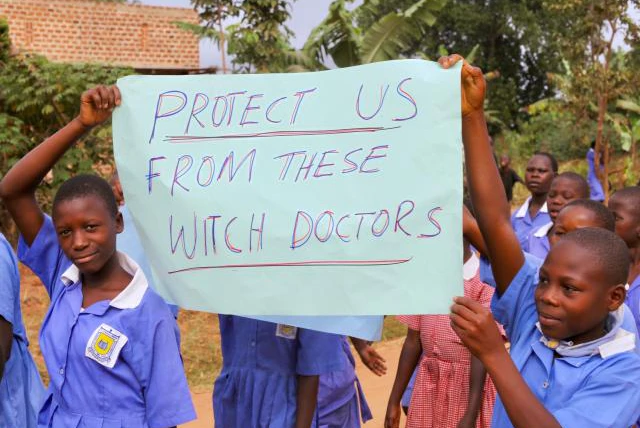 PROTECT US
FROM THESE
WITCH DOCTORS